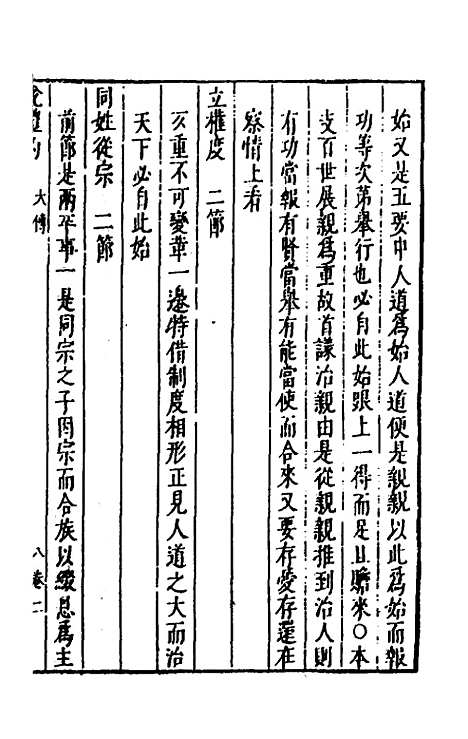 始又是五要中人道為始人道便是親親以此為始而報
功等次第舉行也必自此始跟上一得而足且贍來○本
支百世展親為重故首議治親由是從親親推到治人則
有功當報有賢當舉有能當使而合來又要存愛存還在
察情上看
立權度　二節
次重不可變革一邊特借制度相形正見人道之大而治
天下必自此始
同姓從宗　二節
前節是兩平事一是同宗之子因宗而合族以綴恩為主
大傳
八卷二